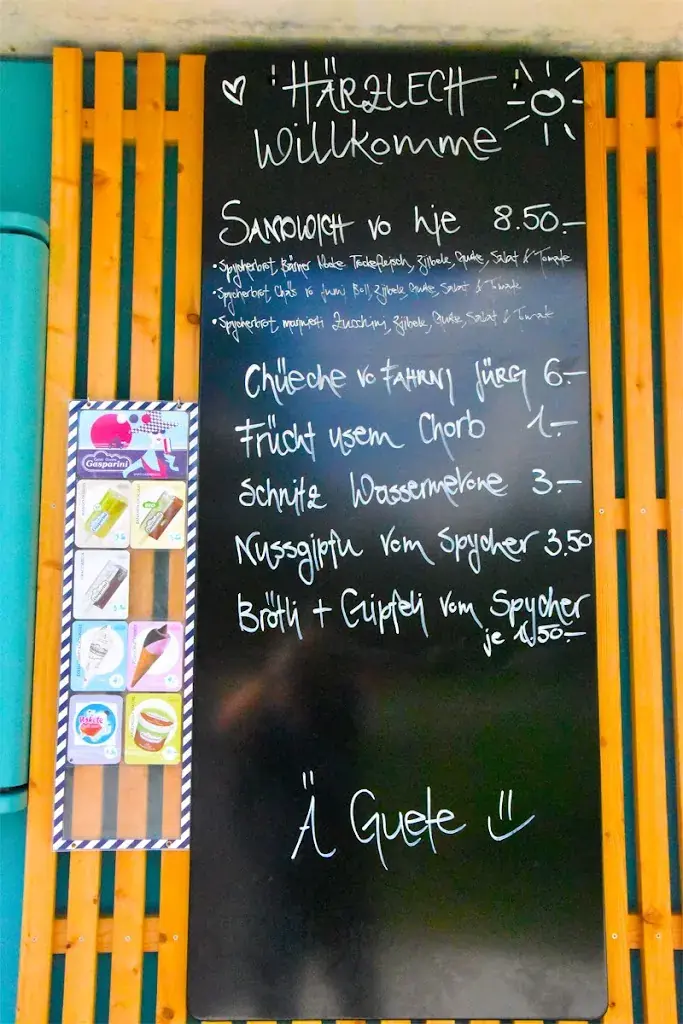 HÄRZLECH
Willkomme
SANDWICH vo hie 8.50.-
• Spycherbrot, Bärner Trochefleisch, Zibele, Gurke, Salat & Tomate
• Spycherbrot, Chäs vo Zibele, Gurke, Salat & Tomate
• Spycherbrot, mariniert Zucchini, Zibele, Gurke, Salat & Tomate
Chüeche vo FAHRNI JÜRG 6.-
Frücht usem Chorb 1.-
Schnitz Wassermelone 3.-
Nussgipfu vom Spycher 3.50
Brötli + Gipfeli vom Spycher
je 1.50.-
Ä Guete
Gasparini